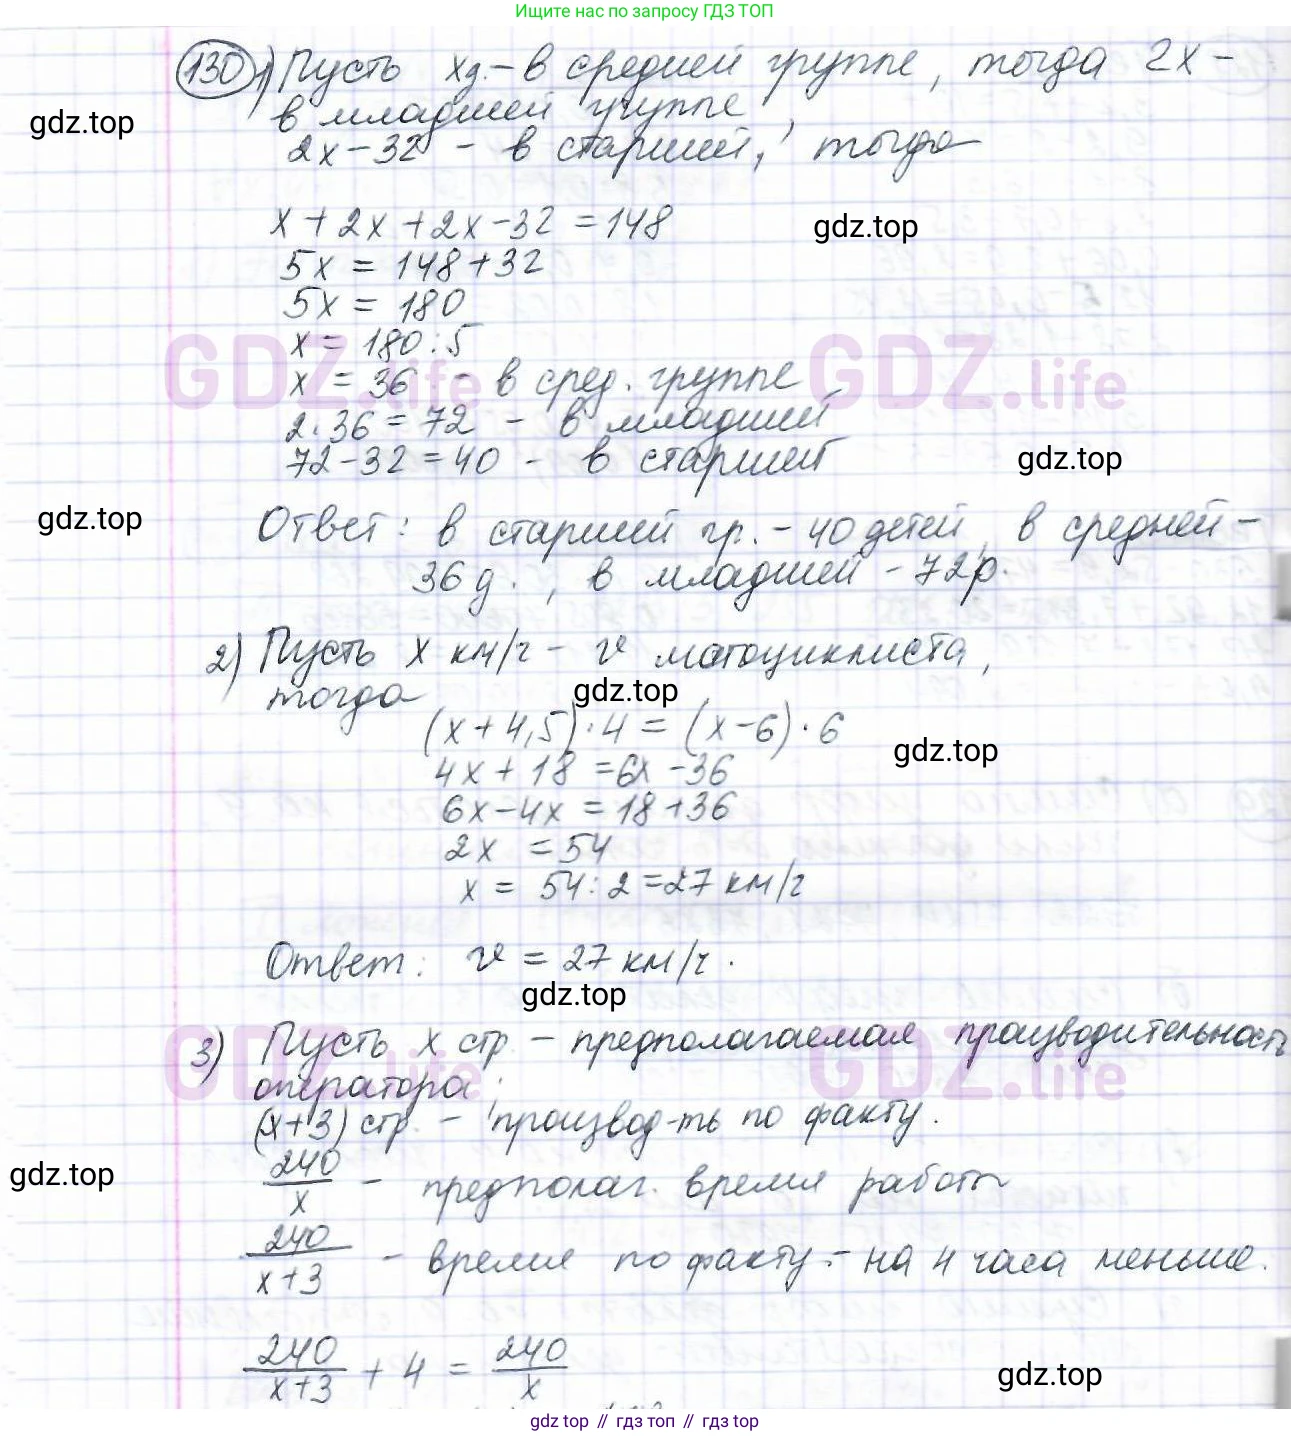 Ищите нас по запросу ГДЗ ТОП
130 1) Пусть x д. – в средней группе, тогда 2x –
в младшей группе,
gdz.top
2x – 32 – в старшей, тогда
x + 2x + 2x – 32 = 148
gdz.top
5x = 148 + 32
5x = 180
x = 180 : 5
GDZ.life GDZ.life
x = 36 – в сред. группе
2 · 36 = 72 – в младшей
72 – 32 = 40 – в старшей
gdz.top
gdz.top
Ответ: в старшей гр. – 40 детей, в средней –
36 д., в младшей – 72 р.
2) Пусть x км/ч – v мотоциклиста,
тогда
gdz.top
(x + 4,5) · 4 = (x – 6) · 6
gdz.top
4x + 18 = 6x – 36
6x – 4x = 18 + 36
2x = 54
x = 54 : 2 = 27 км/ч
Ответ: v = 27 км/ч.
gdz.top
3) Пусть x стр – предполагаемая производительность
GDZ.life GDZ.life
оператора,
(x+3) стр. – производ-ть по факту.
gdz.top
240/x – предполаг. время работы
240/(x+3) – время по факту – на 4 часа меньше.
240/(x+3) + 4 = 240/x
gdz.top
gdz top // гдз топ // gdz top